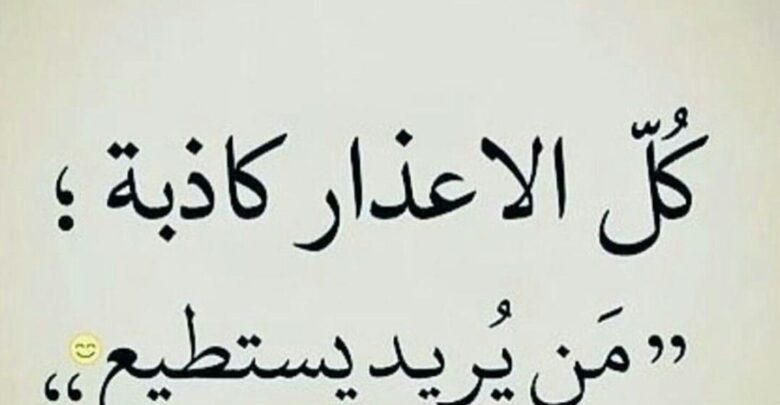 كُلّ الاعذار كاذبة ؛
”مَن يُريد يستطيع😊“